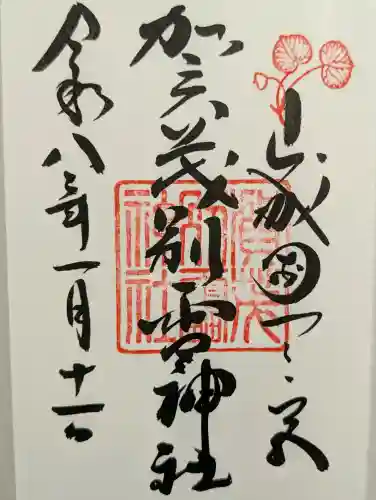 山城國一之宮
加茂別雷神社
令和八年一月十一日